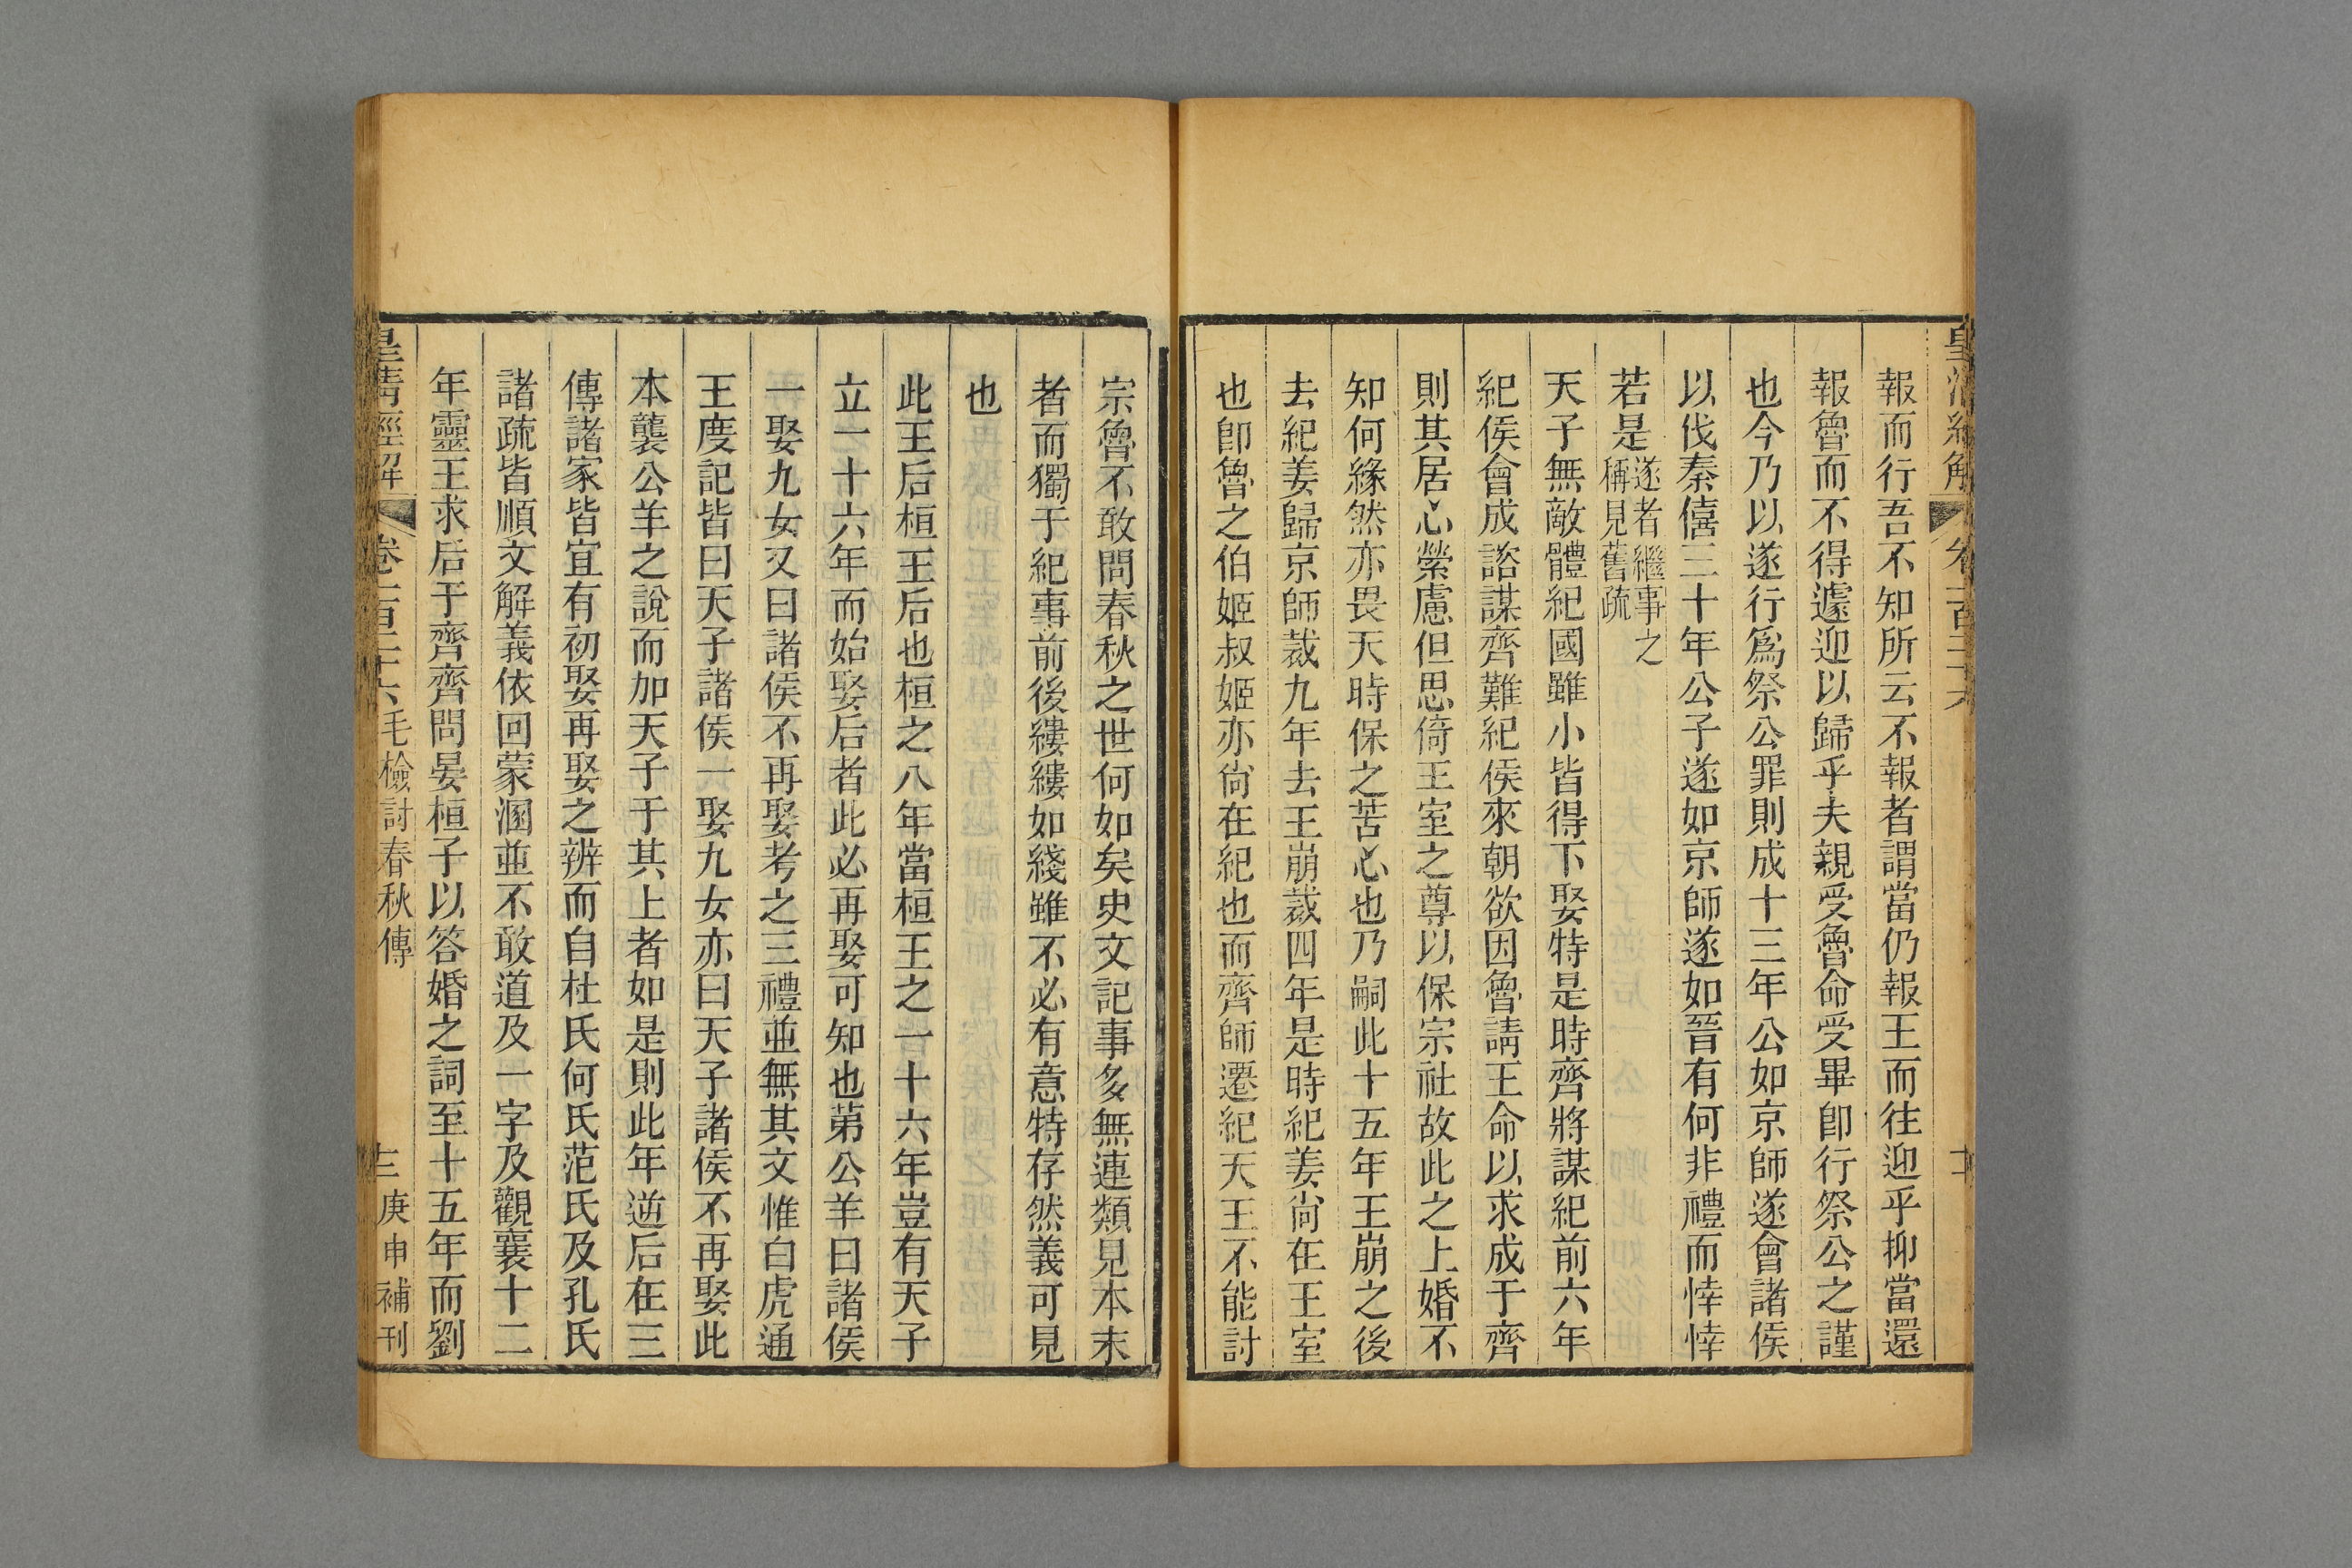 報而行吾不知所云不報者謂當仍報王而往迎乎抑當還
報魯而不得遽迎以歸乎夫親受魯命受畢卽行祭公之謹
也今乃以遂行爲祭公罪則成十三年公如京師遂會諸侯
以伐秦僖三十年公子遂如京師遂如晉有何非禮而悻悻
若是遂者繼事之稱見舊疏
天子無敵體紀國雖小皆得下娶特是時齊將謀紀前六年
紀侯會成諮謀齊難紀侯來朝欲因魯請王命以求成于齊
則其居心縈慮但思倚王室之尊以保宗社故此之上婚不
知何緣然亦畏天時保之苦心也乃嗣此十五年王崩之後
去紀姜歸京師裁九年去王崩裁四年是時紀姜尙在王室
也卽魯之伯姬叔姬亦尙在紀也而齊師遷紀天王不能討
宗魯不敢問春秋之世何如矣史文記事多無連類見本末
者而獨于紀事前後縷縷如綫雖不必有意特存然義可見
也
此王后桓王后也桓之八年當桓王之一十六年豈有天子
立一十六年而始娶后者此必再娶可知也第公羊曰諸侯
一娶九女又曰諸侯不再娶考之三禮並無其文惟白虎通
王度記皆曰天子諸侯一娶九女亦曰天子諸侯不再娶此
本襲公羊之說而加天子于其上者如是則此年逆后在三
傳諸家皆宜有初娶再娶之辨而自杜氏何氏范氏及孔氏
諸疏皆順文解義依回蒙溷並不敢道及一字及觀襄十二
年靈王求后于齊齊問晏桓子以答婚之詞至十五年而劉
皇清經解 卷一百二十六 毛檢討春秋傳 庚申補刊